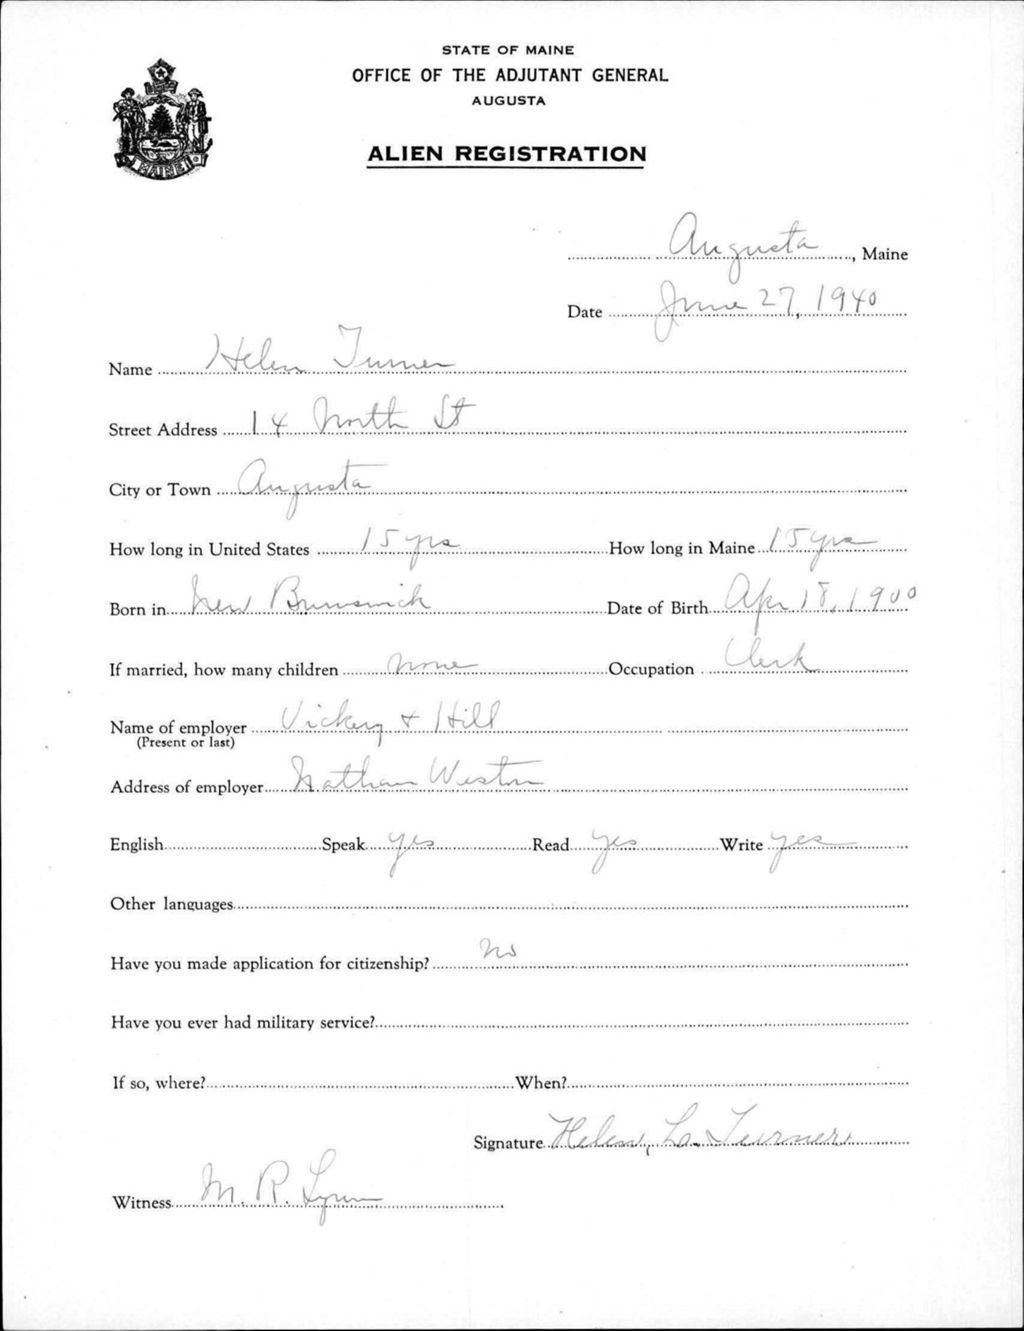 STATE OF MAINE
OFFICE OF THE ADJUTANT GENERAL
AUGUSTA
ALIEN REGISTRATION
MAINE
Augusta, Maine
Date June 27, 1940
Name Helen Turner
Street Address 14 North St
City or Town Augusta
How long in United States 15 yrs How long in Maine 15 yrs
Born in New Brunswick Date of Birth Apr 18, 1900
If married, how many children None Occupation Clerk
Name of employer Vickery + Hill
(Present or last)
Address of employer Nathan Weston
English Speak yes Read yes Write yes
Other languages
Have you made application for citizenship? No
Have you ever had military service?
If so, where? When?
Signature Helen, L. Turner
Witness M. R. Lynn